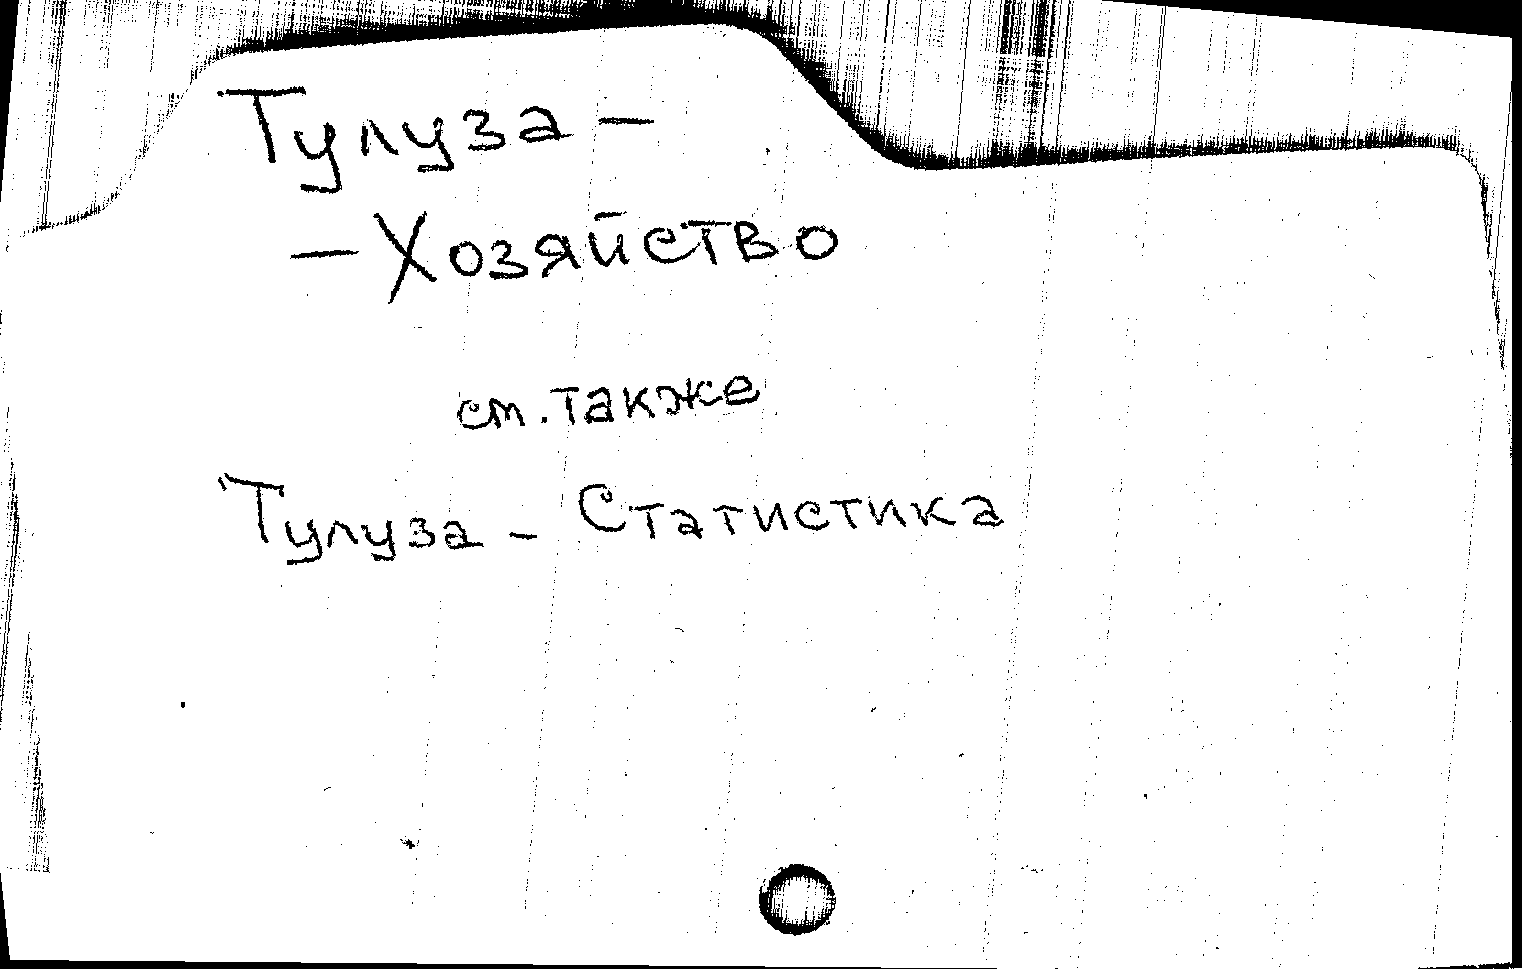 Тулуза -
- Хозяйство
см. также
Тулуза - Статистика